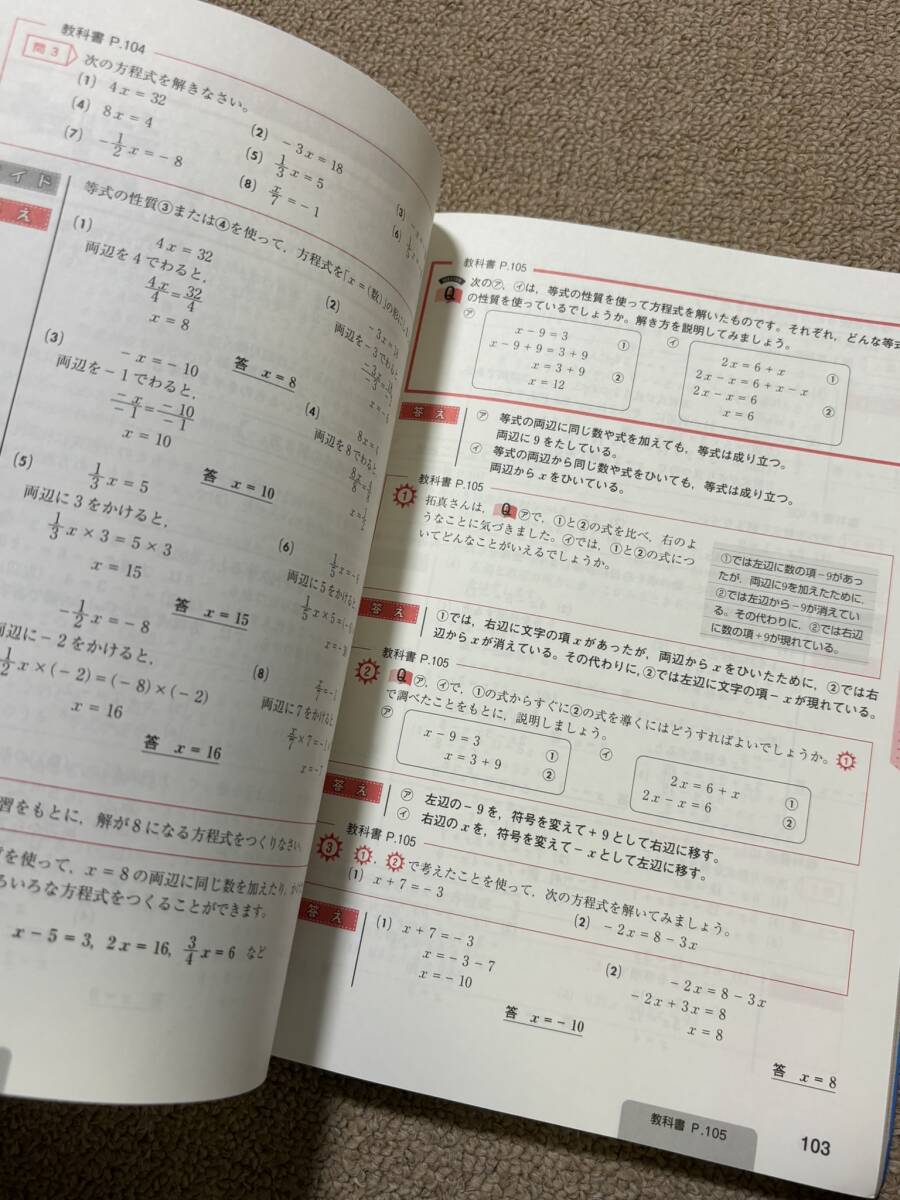 教科書 P.104
問 3
次の方程式を解きなさい。
(1) 4x = 32
(2) −3x = 18
(4) 8x = 4
(5) 1/3 x = 5
(7) −1/2 x = −8
(8) x/7 = −1
(3)
(6)
イド
え
等式の性質③または④を使って，方程式を「x = (数)」の形に
(1)
4x = 32
両辺を 4 でわると，
4x/4 = 32/4
x = 8
答 x = 8
(2)
両辺を −3 でわると
(3)
−x = −10
両辺を −1 でわると，
−x/−1 = −10/−1
x = 10
答 x = 10
(4)
両辺を 8 でわると
(5)
1/3 x = 5
両辺に 3 をかけると，
1/3 x × 3 = 5 × 3
x = 15
答 x = 15
(6)
両辺に 5 をかけると
−1/2 x = −8
辺に −2 をかけると，
1/2 x × (−2) = (−8) × (−2)
x = 16
答 x = 16
(8)
x/7 = −1
両辺に 7 をかけると
習をもとに，解が 8 になる方程式をつくりなさい。
を使って，x = 8 の両辺に同じ数を加えたり，
ろいろな方程式をつくることができます。
x − 5 = 3, 2x = 16, 3/4 x = 6 など
教科書 P.105
Q
次の㋐，㋑は，等式の性質を使って方程式を解いたものです。それぞれ，どんな等式
の性質を使っているでしょうか。解き方を説明してみましょう。
㋐
x − 9 = 3 ①
x − 9 + 9 = 3 + 9
x = 3 + 9 ②
x = 12
㋑
2x = 6 + x ①
2x − x = 6 + x − x
2x − x = 6 ②
x = 6
答え
㋐ 等式の両辺に同じ数や式を加えても，等式は成り立つ。
両辺に 9 をたしている。
㋑ 等式の両辺から同じ数や式をひいても，等式は成り立つ。
両辺から x をひいている。
教科書 P.105
1
拓真さんは，Q ㋐で，①と②の式を比べ，右のよ
うなことに気づきました。㋑では，①と②の式につ
いてどんなことがいえるでしょうか。
①では左辺に数の項−9があっ
たが，両辺に9を加えたために，
②では左辺から−9が消えてい
る。その代わりに，②では右辺
に数の項+9が現れている。
答え
①では，右辺に文字の項 x があったが，両辺から x をひいたために，②では右
辺から x が消えている。その代わりに，②では左辺に文字の項 −x が現れている。
教科書 P.105
2
Q ㋐，㋑で，①の式からすぐに②の式を導くにはどうすればよいでしょうか。1
で調べたことをもとに，説明しましょう。
㋐
x − 9 = 3 ①
x = 3 + 9 ②
㋑
2x = 6 + x ①
2x − x = 6 ②
答え
㋐ 左辺の −9 を，符号を変えて +9 として右辺に移す。
㋑ 右辺の x を，符号を変えて −x として左辺に移す。
教科書 P.105
3
1，2で考えたことを使って，次の方程式を解いてみましょう。
(1) x + 7 = −3
(2) −2x = 8 − 3x
答え
(1) x + 7 = −3
x = −3 − 7
x = −10
答 x = −10
(2)
−2x = 8 − 3x
−2x + 3x = 8
x = 8
答 x = 8
教科書 P.105
103